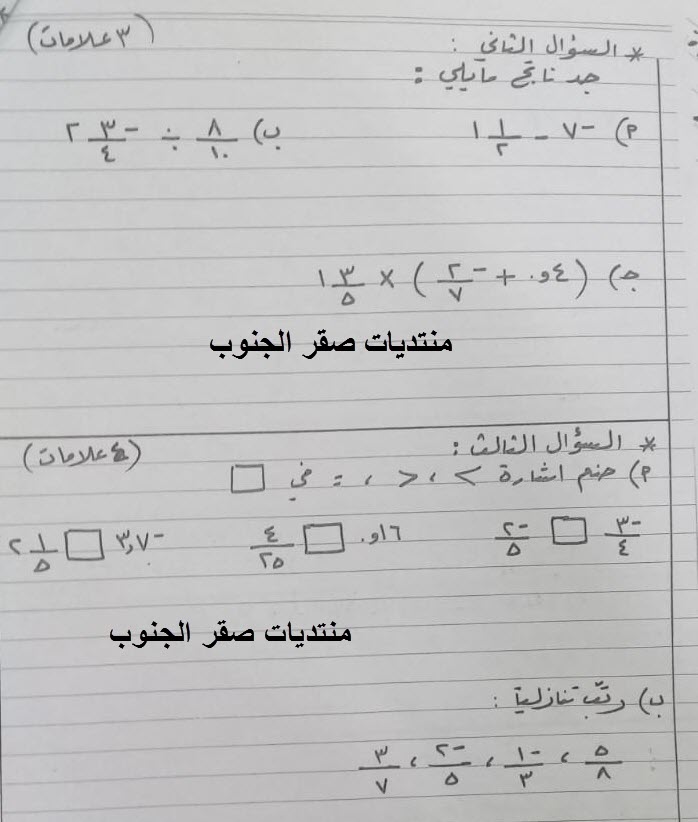 * السؤال الثاني : (٣ علامات)
جد ناتج مايلي :
أ) -٧ - ١ ١/٢ ب) ٨/١٠ ÷ -٣/٤ ٢
ج) (٤و٠ + -٢/٧) × ١ ٣/٥
منتديات صقر الجنوب
* السؤال الثالث : (٤ علامات)
أ) ضع اشارة > ، < ، = في □
-٣/٤ □ -٢/٥ ١٦و٠ □ ٤/٢٥ -٣,٧ □ ٢ ١/٥
منتديات صقر الجنوب
ب) رتّب تنازلياً :
٥/٨ ، -١/٣ ، -٢/٥ ، ٣/٧